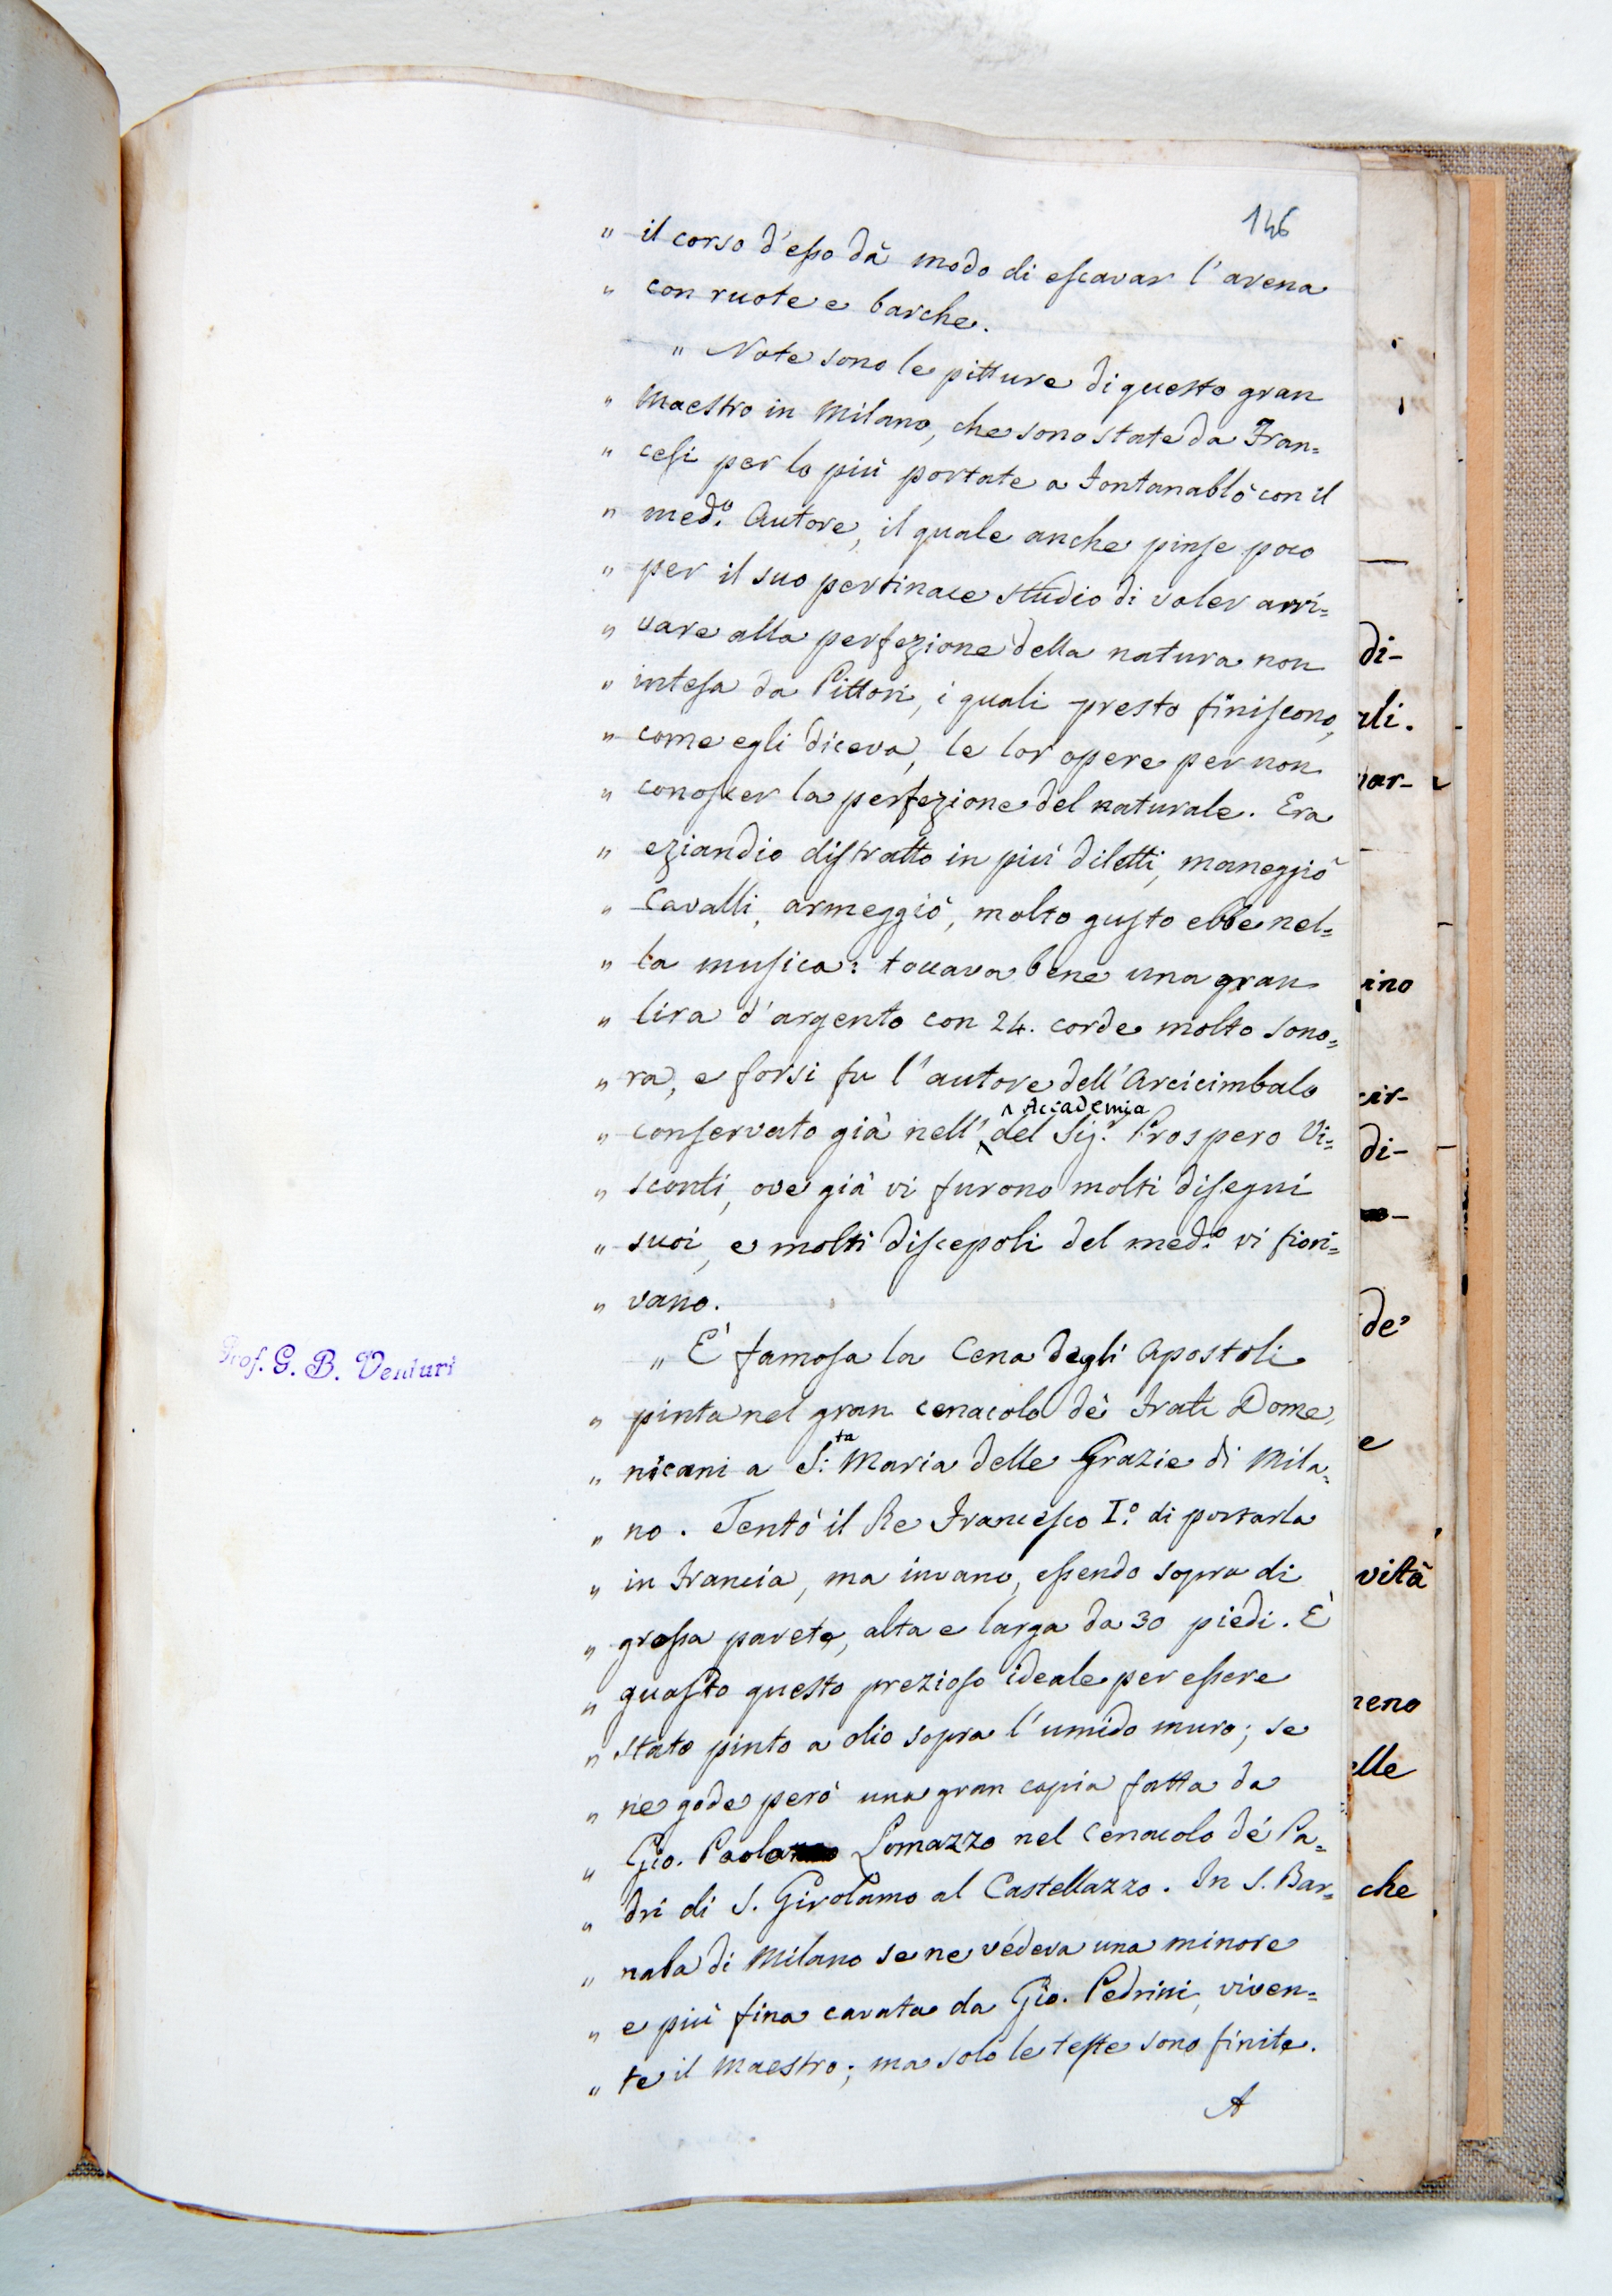 146
„ il corso d'esso dà modo di escavar l'arena
„ con ruote e barche.
„ Note sono le pitture di questo gran
„ Maestro in Milano, che sono state da Fran=
„ cesi per lo più portate a Fontanablò con il
„ med.º Autore, il quale anche pinse poco
„ per il suo pertinace studio di voler arri=
„ vare alla perfezione della natura non
„ intesa da Pittori, i quali presto finiscono,
„ come egli diceva, le lor opere per non
„ conoscer la perfezione del naturale. Era
„ eziandio distratto in più diletti, maneggiò
„ Cavalli, armeggiò, molto gusto ebbe nel=
„ la musica: toccava bene una gran
„ lira d'argento con 24. corde molto sono=
„ ra, e forsi fu l'autore dell'Arcicimbalo
„ conservato già nell' Accademia del Sig.r Prospero Vi=
„ sconti, ove già vi furono molti disegni
„ suoi, e molti discepoli del med.º vi fiori=
„ vano.
„ È famosa la Cena degli Apostoli
„ pinta nel gran cenacolo dè Frati Dome=
„ nicani a S:ta Maria delle Grazie di Mila=
„ no. Tentò il Re Francesco I.º di portarla
„ in Francia, ma invano, essendo sopra di
„ grossa parete, alta e larga da 30 piedi. È
„ guasto questo prezioso ideale per essere
„ stato pinto a olio sopra l'umido muro; se
„ ne gode però una gran copia fatta da
„ Gio. Paolo Lomazzo nel Cenacolo dé Pa=
„ dri di S. Girolamo al Castellazzo. In S. Bar=
„ naba di Milano se ne vedeva una minore
„ e più fina cavata da Gio. Pedrini, viven=
„ te il Maestro; ma solo le teste sono finite.
A
Prof. G. B. Venturi
di-
ali.
nar-
ino
cir-
di-
de'
e
vità
neno
elle
che